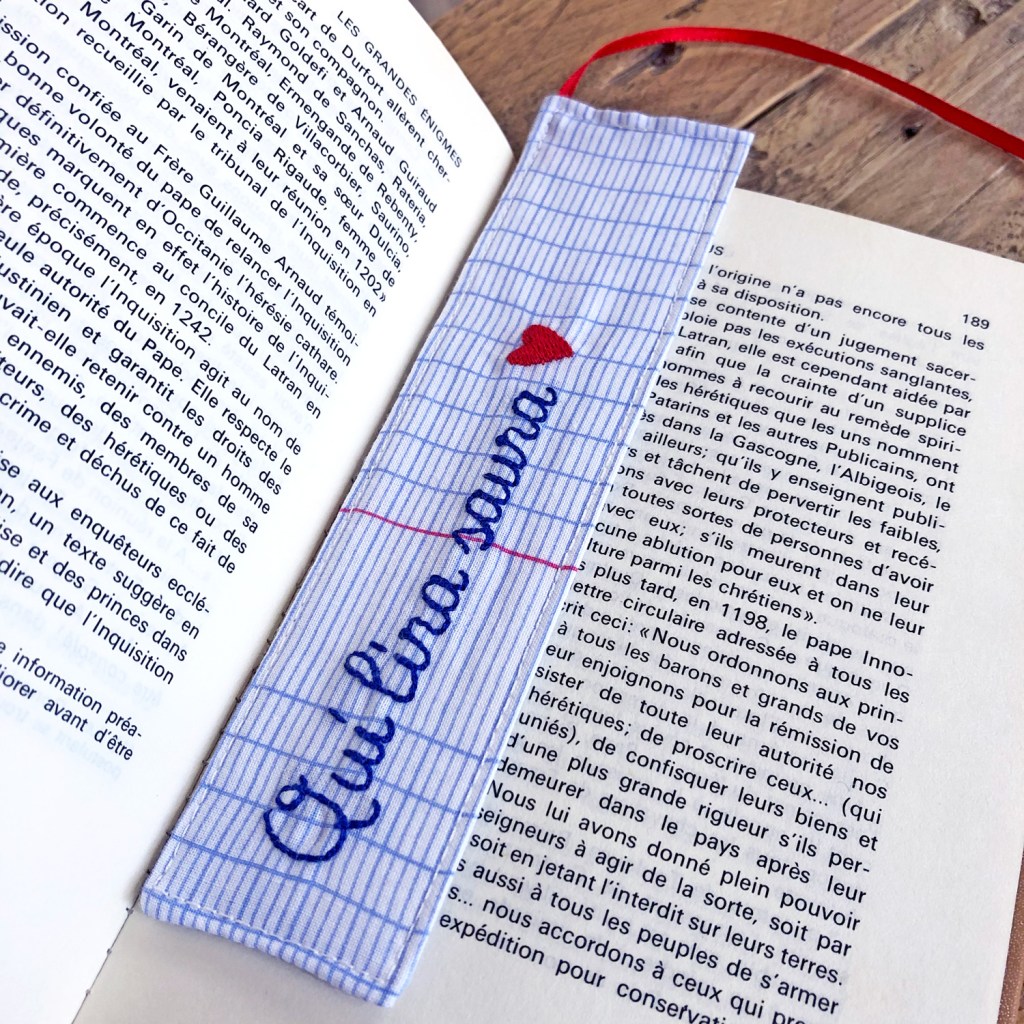 LES GRANDES ÉNIGMES
cart de Durfort allèrent cher-
et son compagnon.
ard Goldefi et Arnaud Guiraud
Raymond de Sanchas, Rateria
Montréal, Ermengarde de Rebenty,
Garin de Villacorbier, Saurino,
Bérangère de Montréal et sa sœur Dulcia,
de Montréal, Poncia Rigaude, femme de
Montréal, venaient à leur réunion en 1202»
recueillie par le tribunal de l'Inquisition en
ission confiée au Frère Guillaume Arnaud témoi-
bonne volonté du pape de relancer l'Inquisition
définitivement d'Occitanie l'hérésie cathare.
ques marquent en effet l'histoire de l'Inqui-
mière commence au concile du Latran en
de, précisément, en 1242
ère époque l'Inquisition agit au nom de
eule autorité du Pape. Elle respecte le
ustinien et garantit les droits des
vait-elle retenir contre un homme
ennemis, des membres de sa
teurs, des hérétiques ou des
crime et déchus de ce fait de
ise aux enquêteurs ecclé-
on, un texte suggère en
ise et des princes dans
dire que l'Inquisition
e information préa-
jorer avant d'être
Qui lina saura
US
189
l'origine n'a pas encore tous les
à sa disposition.
se contente d'un jugement sacer-
ploie pas les exécutions sanglantes,
Latran, elle est cependant aidée par
afin que la crainte d'un supplice
ommes à recourir au remède spiri-
les hérétiques que les uns nomment
Patarins et les autres Publicains, ont
dans la Gascogne, l'Albigeois, le
ailleurs; qu'ils y enseignent publi-
rs et tâchent de pervertir les faibles,
ons avec leurs protecteurs et recé-
toutes sortes de personnes d'avoir
avec eux; s'ils meurent dans leur
cune ablution pour eux et on ne leur
ulture parmi les chrétiens».
s plus tard, en 1198, le pape Inno-
ettre circulaire adressée à tous les
crit ceci: «Nous ordonnons aux prin-
à tous les barons et grands de vos
eur enjoignons pour la rémission de
sister de toute leur autorité nos
hérétiques; de proscrire ceux... (qui
uniés), de confisquer leurs biens et
d'une plus grande rigueur s'ils per-
demeurer dans le pays après leur
Nous lui avons donné plein pouvoir
seigneurs à agir de la sorte, soit par
soit en jetant l'interdit sur leurs terres.
s aussi à tous les peuples de s'armer
s... nous accordons à ceux qui pre
expédition pour conservati